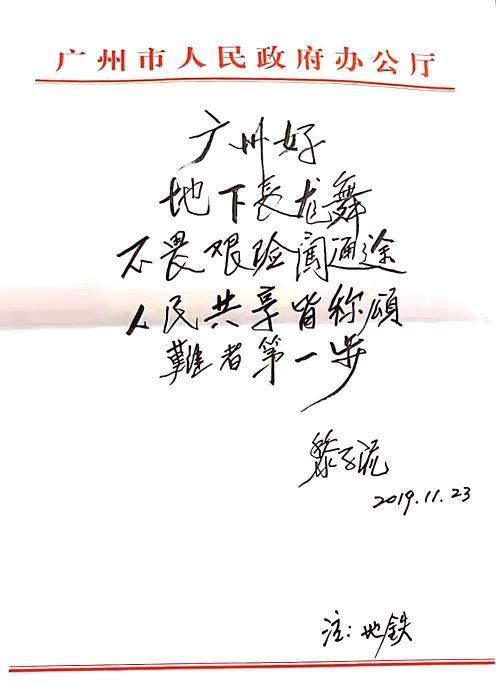 广州市人民政府办公厅
广州好
地下长龙舞
不畏艰险闯通途
人民共享皆称颂
难者第一步
黎子流
2019.11.23
注:地铁